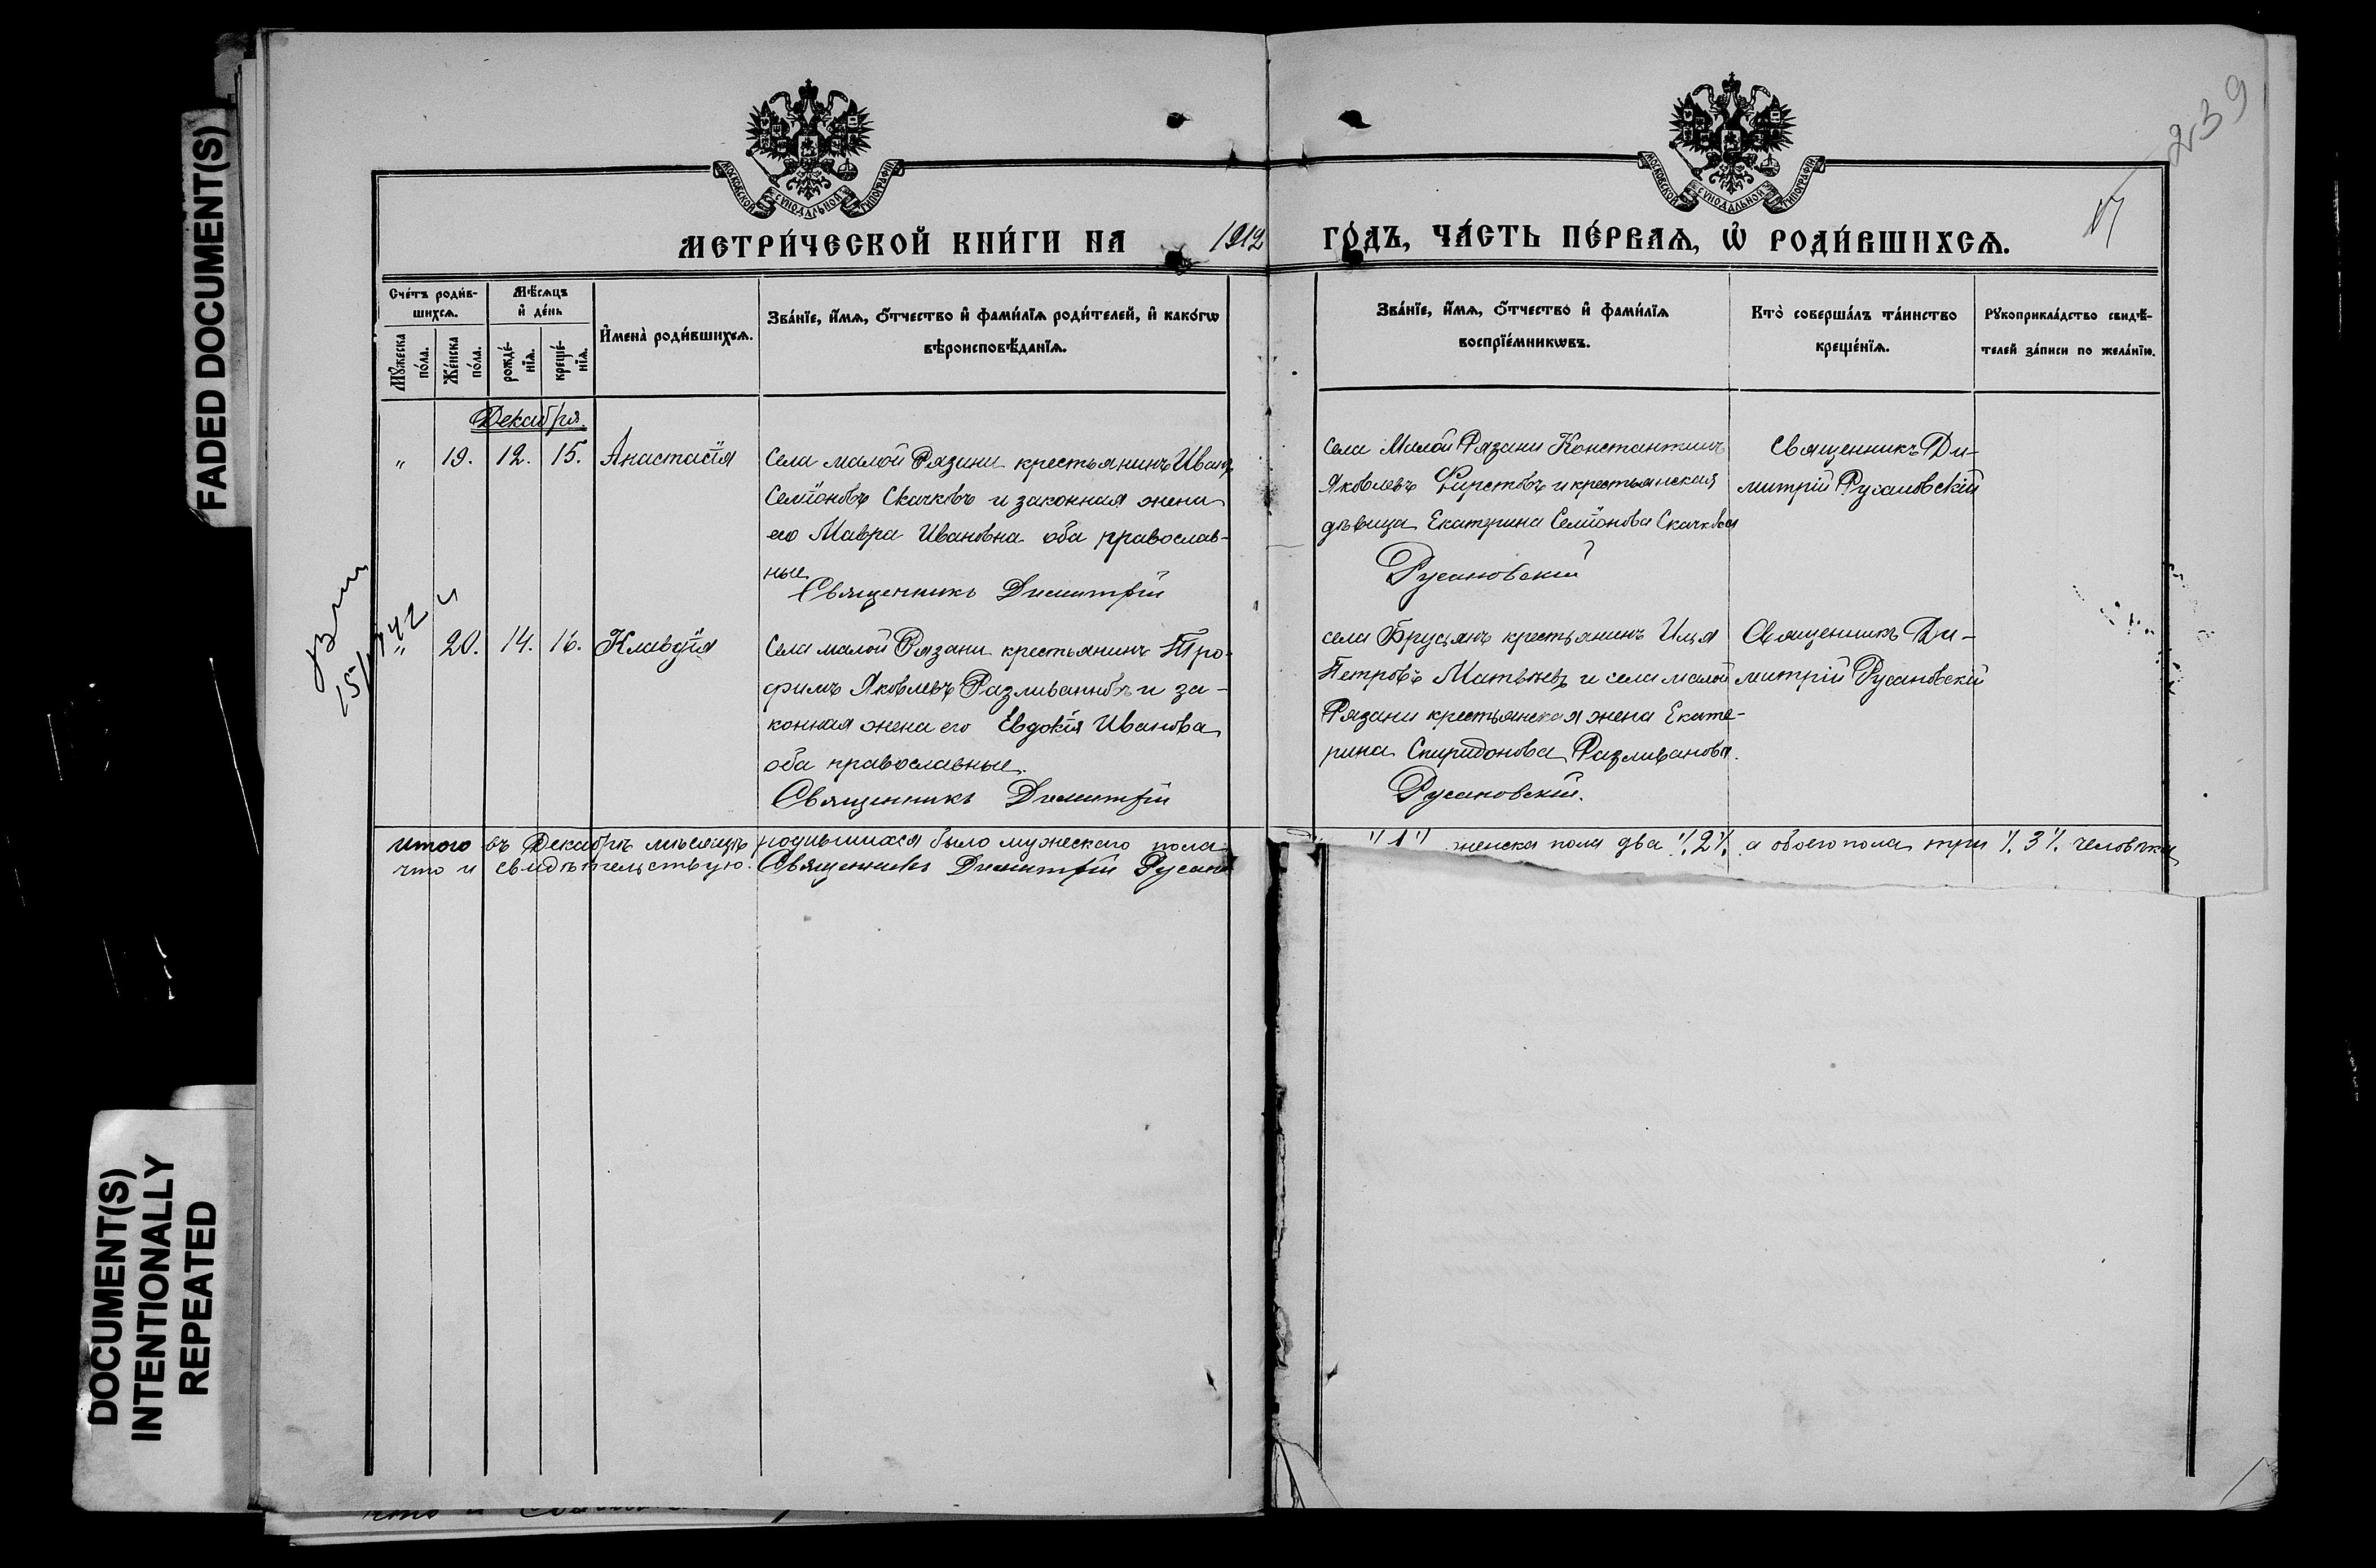 FADED DOCUMENT(S)
DOCUMENT(S)
INTENTIONALLY
REPEATED
239
МОСКОВСКОЙ СѴНОДАЛЬНОЙ ТИПОГРАФІИ
МОСКОВСКОЙ СѴНОДАЛЬНОЙ ТИПОГРАФІИ
МЕТРИ́ЧЕСКОЙ КНИ́ГИ НА 1912 ГО́ДЪ, ЧА́СТЬ ПЕ́РВАѦ, Ѡ҆ РОДИ́ВШИХСѦ.
Сче́тъ роди́в-
шихсѧ.
Мꙋ́жеска
по́ла.
Же́нска
по́ла.
Мѣ́сѧцъ
и҆ де́нь
рожде́-
нїѧ.
креще́-
нїѧ.
И҆мена̀ роди́вшихсѧ.
Зва́нїе, и҆́мѧ, ѻ҆́тчество и҆ фами́лїѧ роди́телей, и҆ како́гѡ
вѣроисповѣ́данїѧ.
Зва́нїе, и҆́мѧ, ѻ҆́тчество и҆ фами́лїѧ
воспрїе́мникѡвъ.
Кто̀ соверша́лъ та́инство
креще́нїѧ.
Рꙋкоприкла́дство свидѣ́-
телей за́писи по жела́нїю.
Декабря.
" 19. 12. 15. Анастасія
Села малой Рязани крестьянинъ Иванъ
Семіоновъ Скачковъ и законная жена
его Мавра Ивановна оба православ-
ные
Священникъ Димитрій
села Малой Рязани Константинъ
Яковлевъ и крестьянская
дѣвица Екатерина Семіонова Скачкова
Русановскій
Священникъ Ди-
митрій Русановскій
15/ 42
" 20. 14. 16. Клавдія
Села малой Рязани крестьянинъ Тро-
фимъ Яковлевъ Разливановъ и за-
конная жена его Евдокія Иванова
оба православные.
Священникъ Димитрій
села Брусянъ крестьянинъ Илья
Петровъ Матвѣевъ и села малой
Рязани крестьянская жена Екате-
рина Спиридонова Разливанова.
Русановскій.
Священникъ Ди-
митрій Русановскій
итого въ Декабрѣ мѣсяцѣ родившихся было мужескаго пола "1" женска пола два "2" а обоего пола три "3" человѣка
что и свидѣтельствую. Священникъ Димитрій Русано